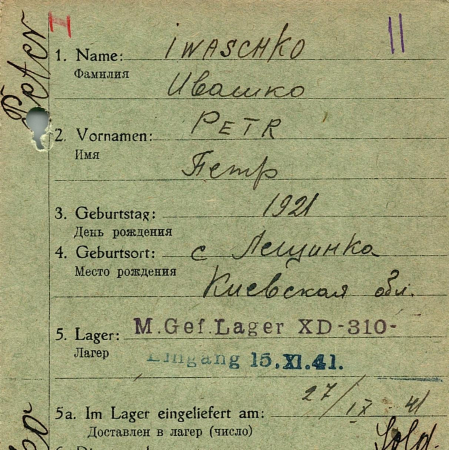 H
II
Peter
1. Name: IWASCHKO
Фамилия
Ивашко
2. Vornamen: PETR
Имя
Петр
3. Geburtstag: 1921
День рождения
4. Geburtsort: с Лещинка
Место рождения
Киевская обл.
5. Lager: M.Gef.Lager XD-310-
Лагер
Eingang 15.XI.41.
27/IX 41
5a. Im Lager eingeliefert am:
Доставлен в лагер (число)
Sold.